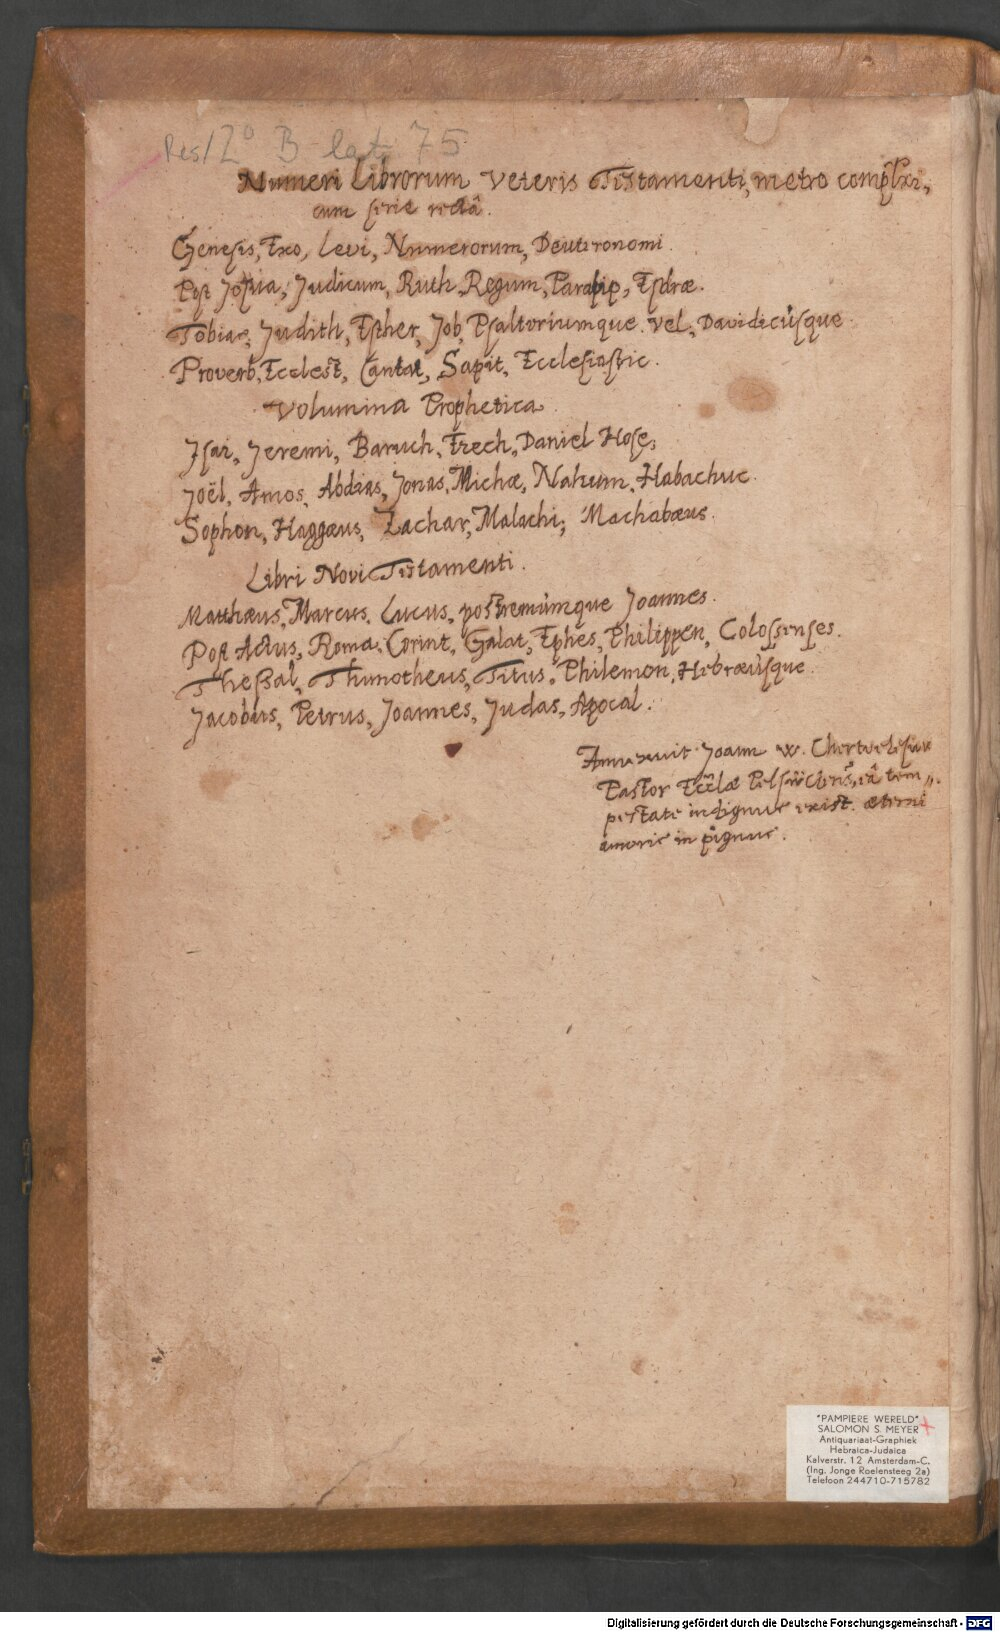 Res/2° B lat. 75
Numeri Librorum Veteris Testamenti, metro complexi,
cum serie rectâ.
Genesis, Exo, Levi, Numerorum, Deuteronomi
Post Josua, Judicum, Ruth, Regum, Paralip, Esdræ.
Tobiae, Judith, Esther, Job, Psaltoriumque vel, Davidicúsque
Proverb, Ecclest, Cantat, Sapit, Ecclesiastic.
Volumina Prophetica
Jsai, Jeremi, Baruch, Ezech, Daniel Hose,
Joël, Amos, Abdias, Jonas, Michæ, Nahum, Habachuc.
Sophon, Haggæus, Zachar, Malachi, Machabæus.
Libri Novi Testamenti.
Matthæus, Marcus, Lucus, postremúmque Joannes.
Post Actus, Roma, Corint, Galat, Ephes, Philippen, Colossenses.
Theßal, Thimotheus, Titus, Philemon, Hebræúsque
Jacobus, Petrus, Joannes, Judas, Apocal.
Annexuit Joann W.
Pastor Eccłæ eâ tem,,
pestate indignus exist. æterni
amoris in pignus.
"PAMPIERE WERELD"
SALOMON S. MEYER
Antiquariaat-Graphiek
Hebraica-Judaica
Kalverstr. 12 Amsterdam-C.
(Ing. Jonge Roelensteeg 2a)
Telefoon 244710-715782
Digitalisierung gefördert durch die Deutsche Forschungsgemeinschaft - DFG